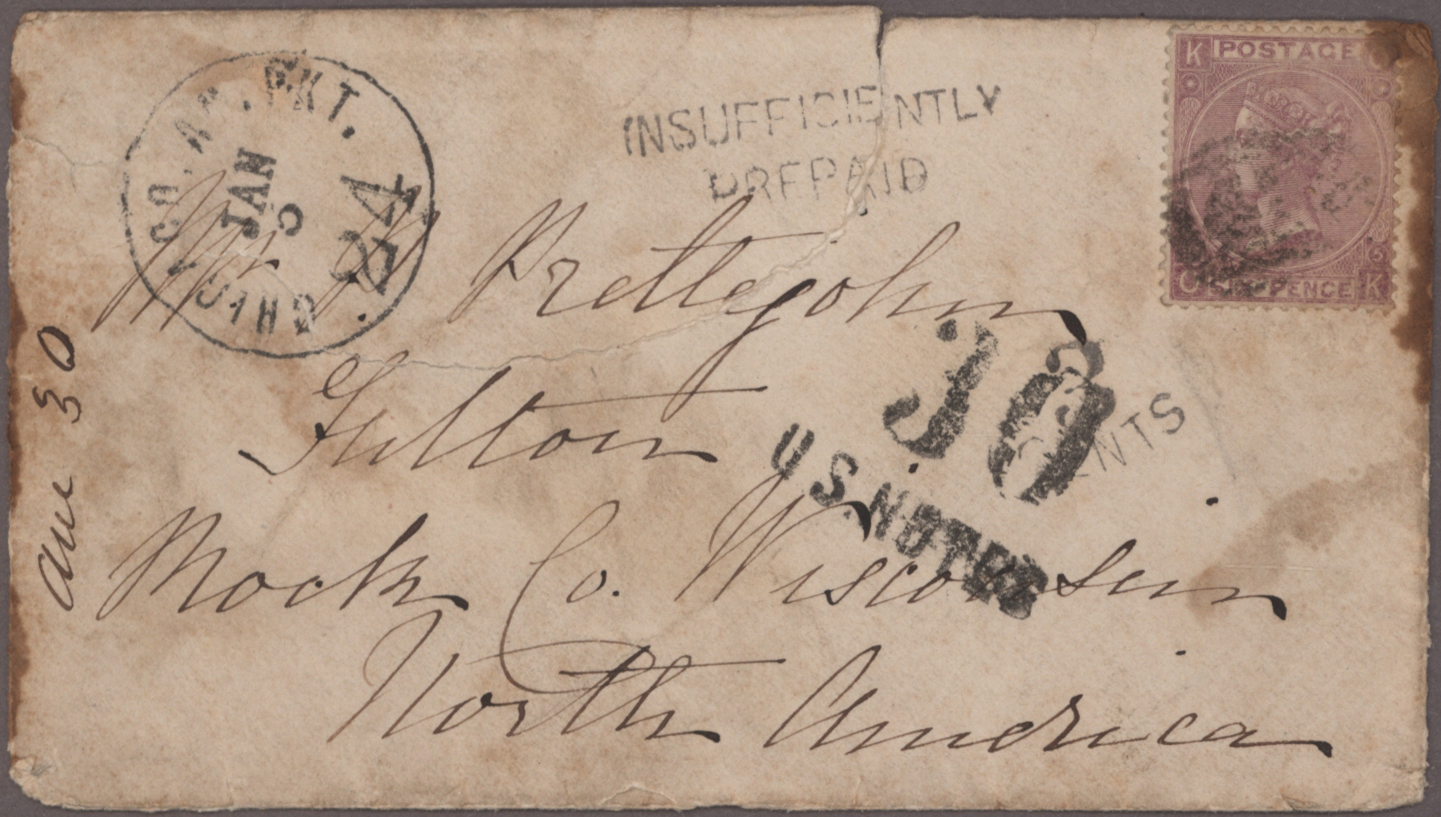 CHICAGO. AM. PKT.
JAN
24
INSUFFICIENTLY
PREPAID
K POSTAGE
SIXPENCE K
Prettejohn
Fulton
30
CENTS
U.S. NOTES
Rock Co. Wisconsin
North America
due 30